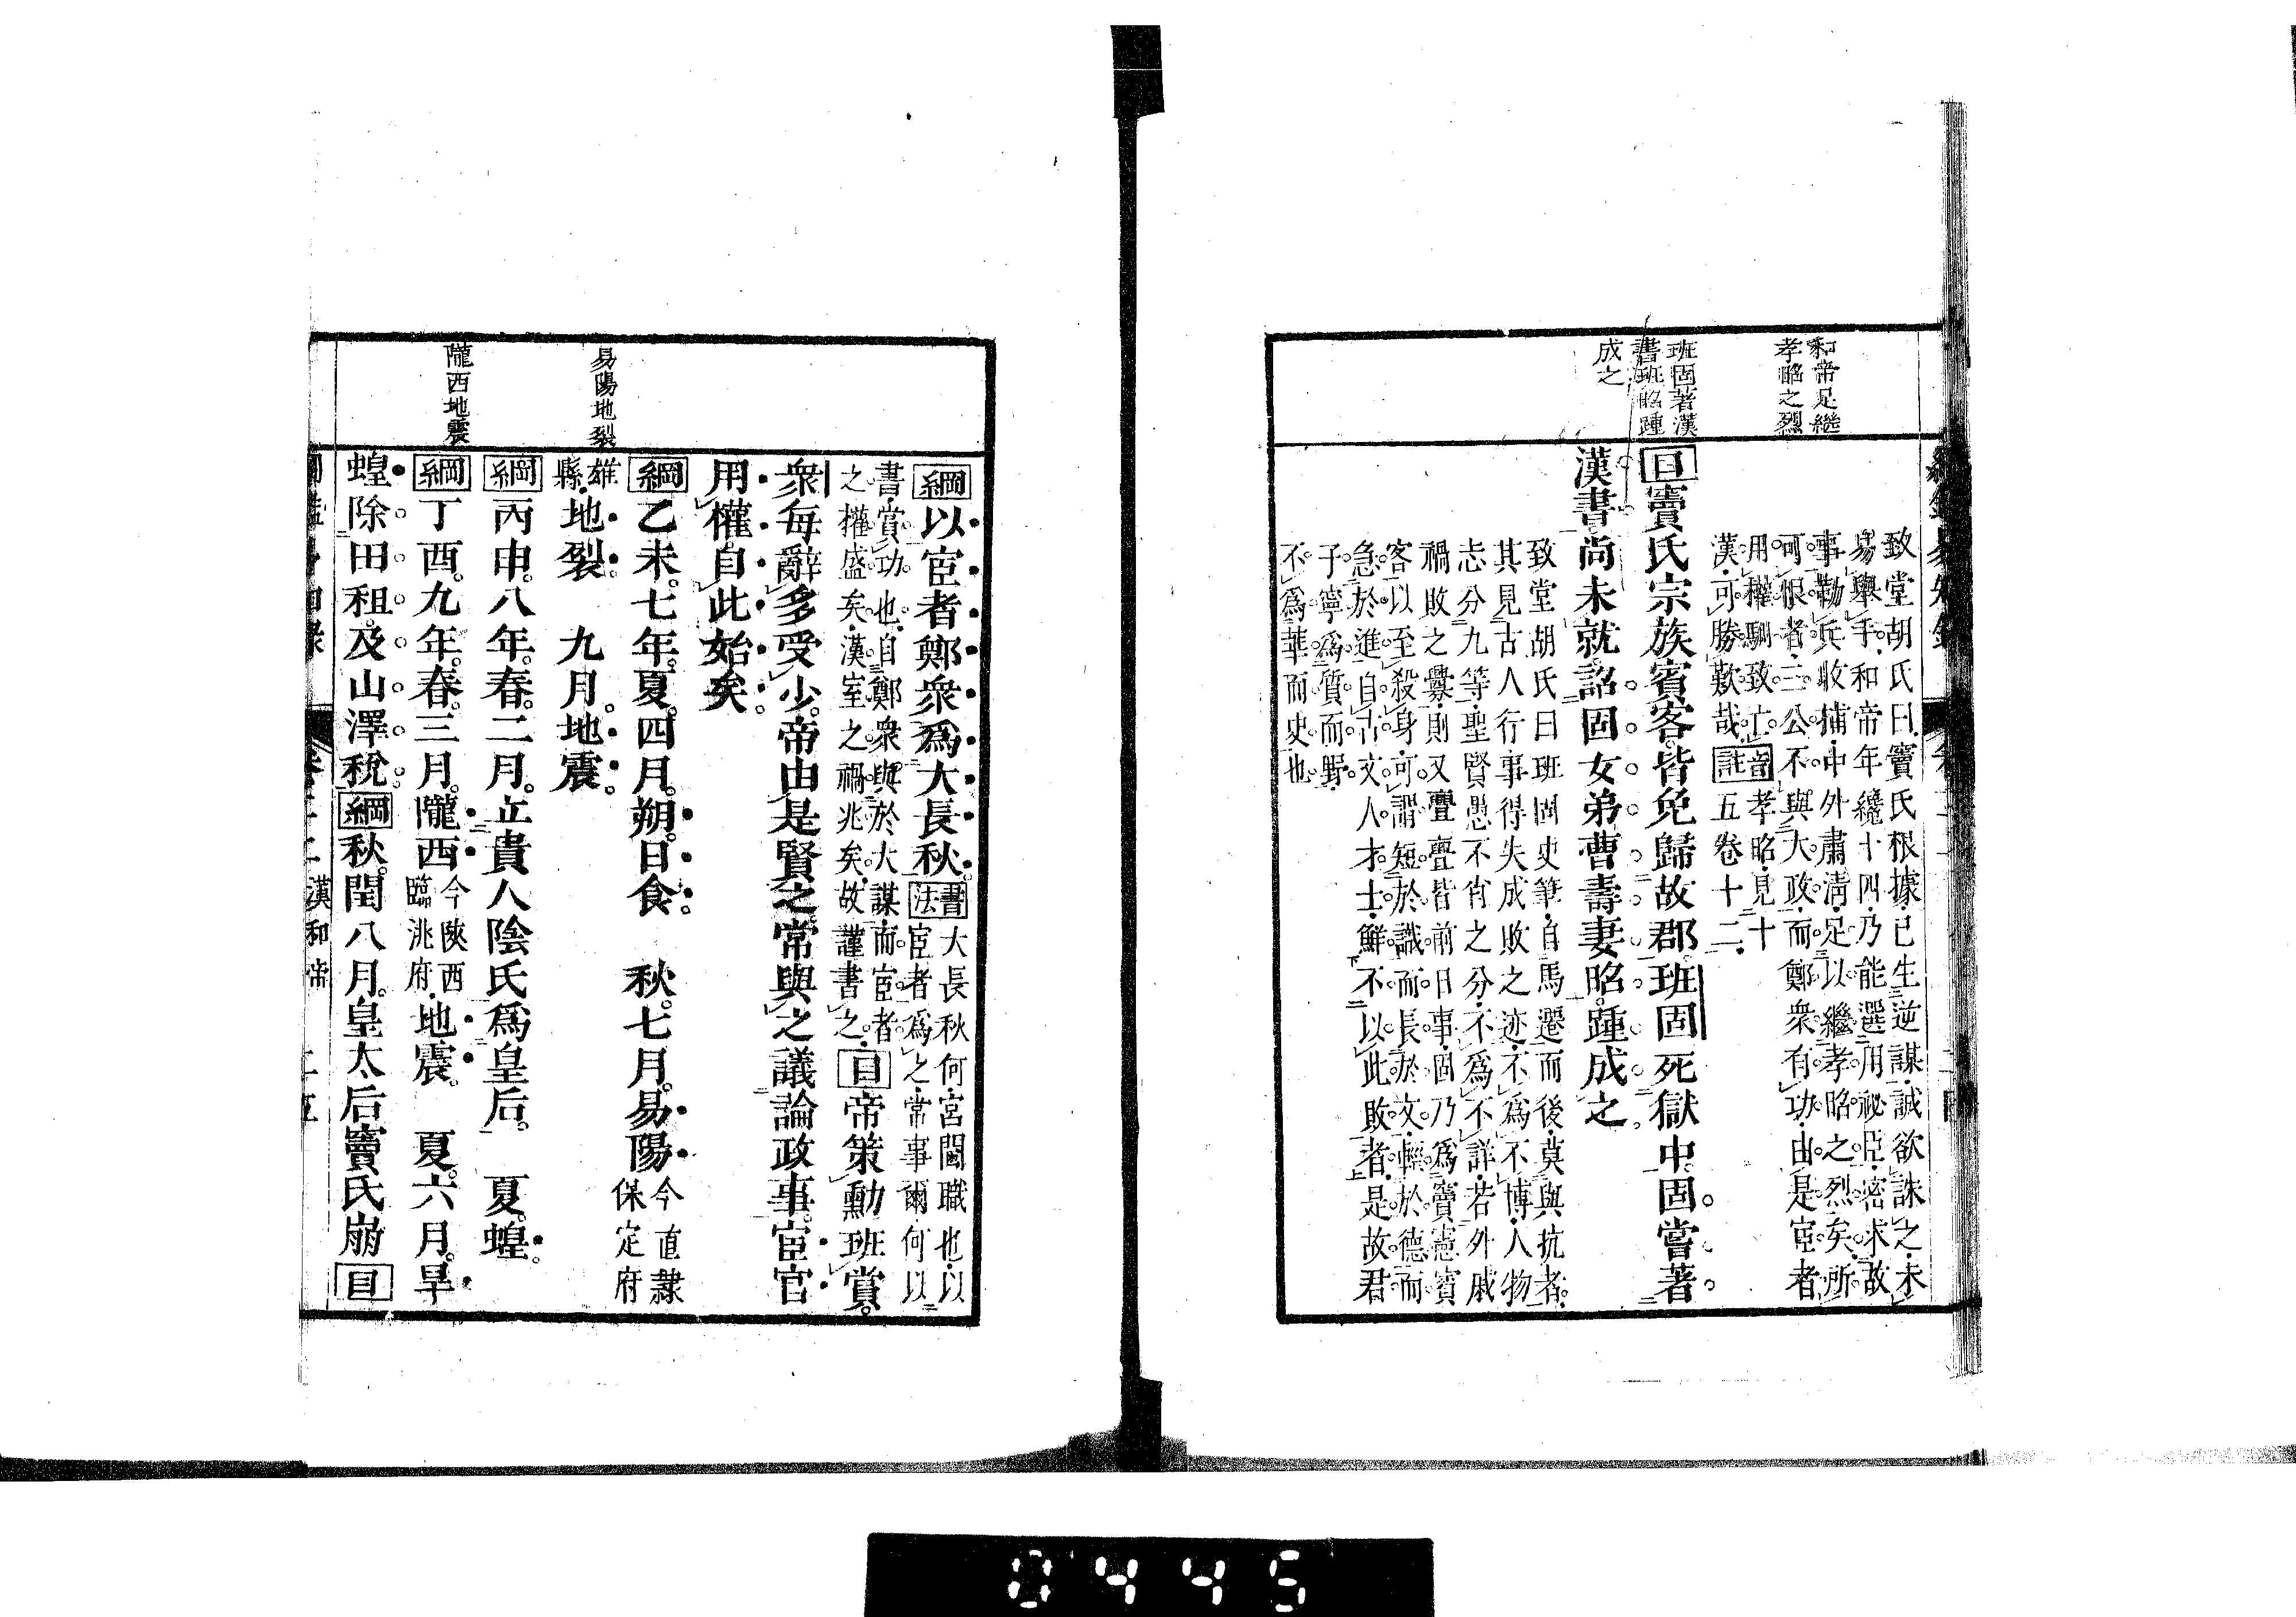 和帝足繼
孝昭之烈
班固著漢
書班昭踵
成之
致堂胡氏曰竇氏根據已生逆謀誠欲誅之未
易舉手和帝年纔十四乃能選用祕臣密求故
事勒兵收捕中外肅淸足以繼孝昭之烈矣所
可恨者三公不與大政而鄭衆有功由是宦者
用權馴致亡
漢可勝歎哉
音註
孝昭見十
五卷十二
目竇氏宗族賓客皆免歸故郡班固死獄中固嘗著
漢書尚未就詔固女弟曹壽妻昭踵成之
致堂胡氏曰班固史筆自馬遷而後莫與抗者
其見古人行事得失成敗之迹不爲不博人物
志分九等聖賢愚不肖之分不爲不詳若外戚
禍敗之釁則又亹亹皆前日事固乃爲竇憲賓
客以至殺身可謂短於識而長於文輕於德而
急於進自古文人才士鮮不以此敗者是故君
子寧爲質而野
不爲華而史也
易陽地裂
隴西地震
綱以宦者鄭衆爲大長秋
書法
大長秋何宮闈職也以
宦者爲之常事爾何以
書賞功也自鄭衆與於大謀而宦者
之權盛矣漢室之禍兆矣故謹書之
目帝策勳班賞
衆每辭多受少帝由是賢之常與之議論政事宦官
用權自此始矣
綱乙未七年夏四月朔日食　秋七月易陽
今直隸
保定府
雄
縣
地裂　九月地震
綱丙申八年春二月立貴人陰氏爲皇后　夏蝗
綱丁酉九年春三月隴西
今陝西
臨洮府
地震　夏六月旱
蝗除田租及山澤稅綱秋閏八月皇太后竇氏崩目
漢和帝
0445